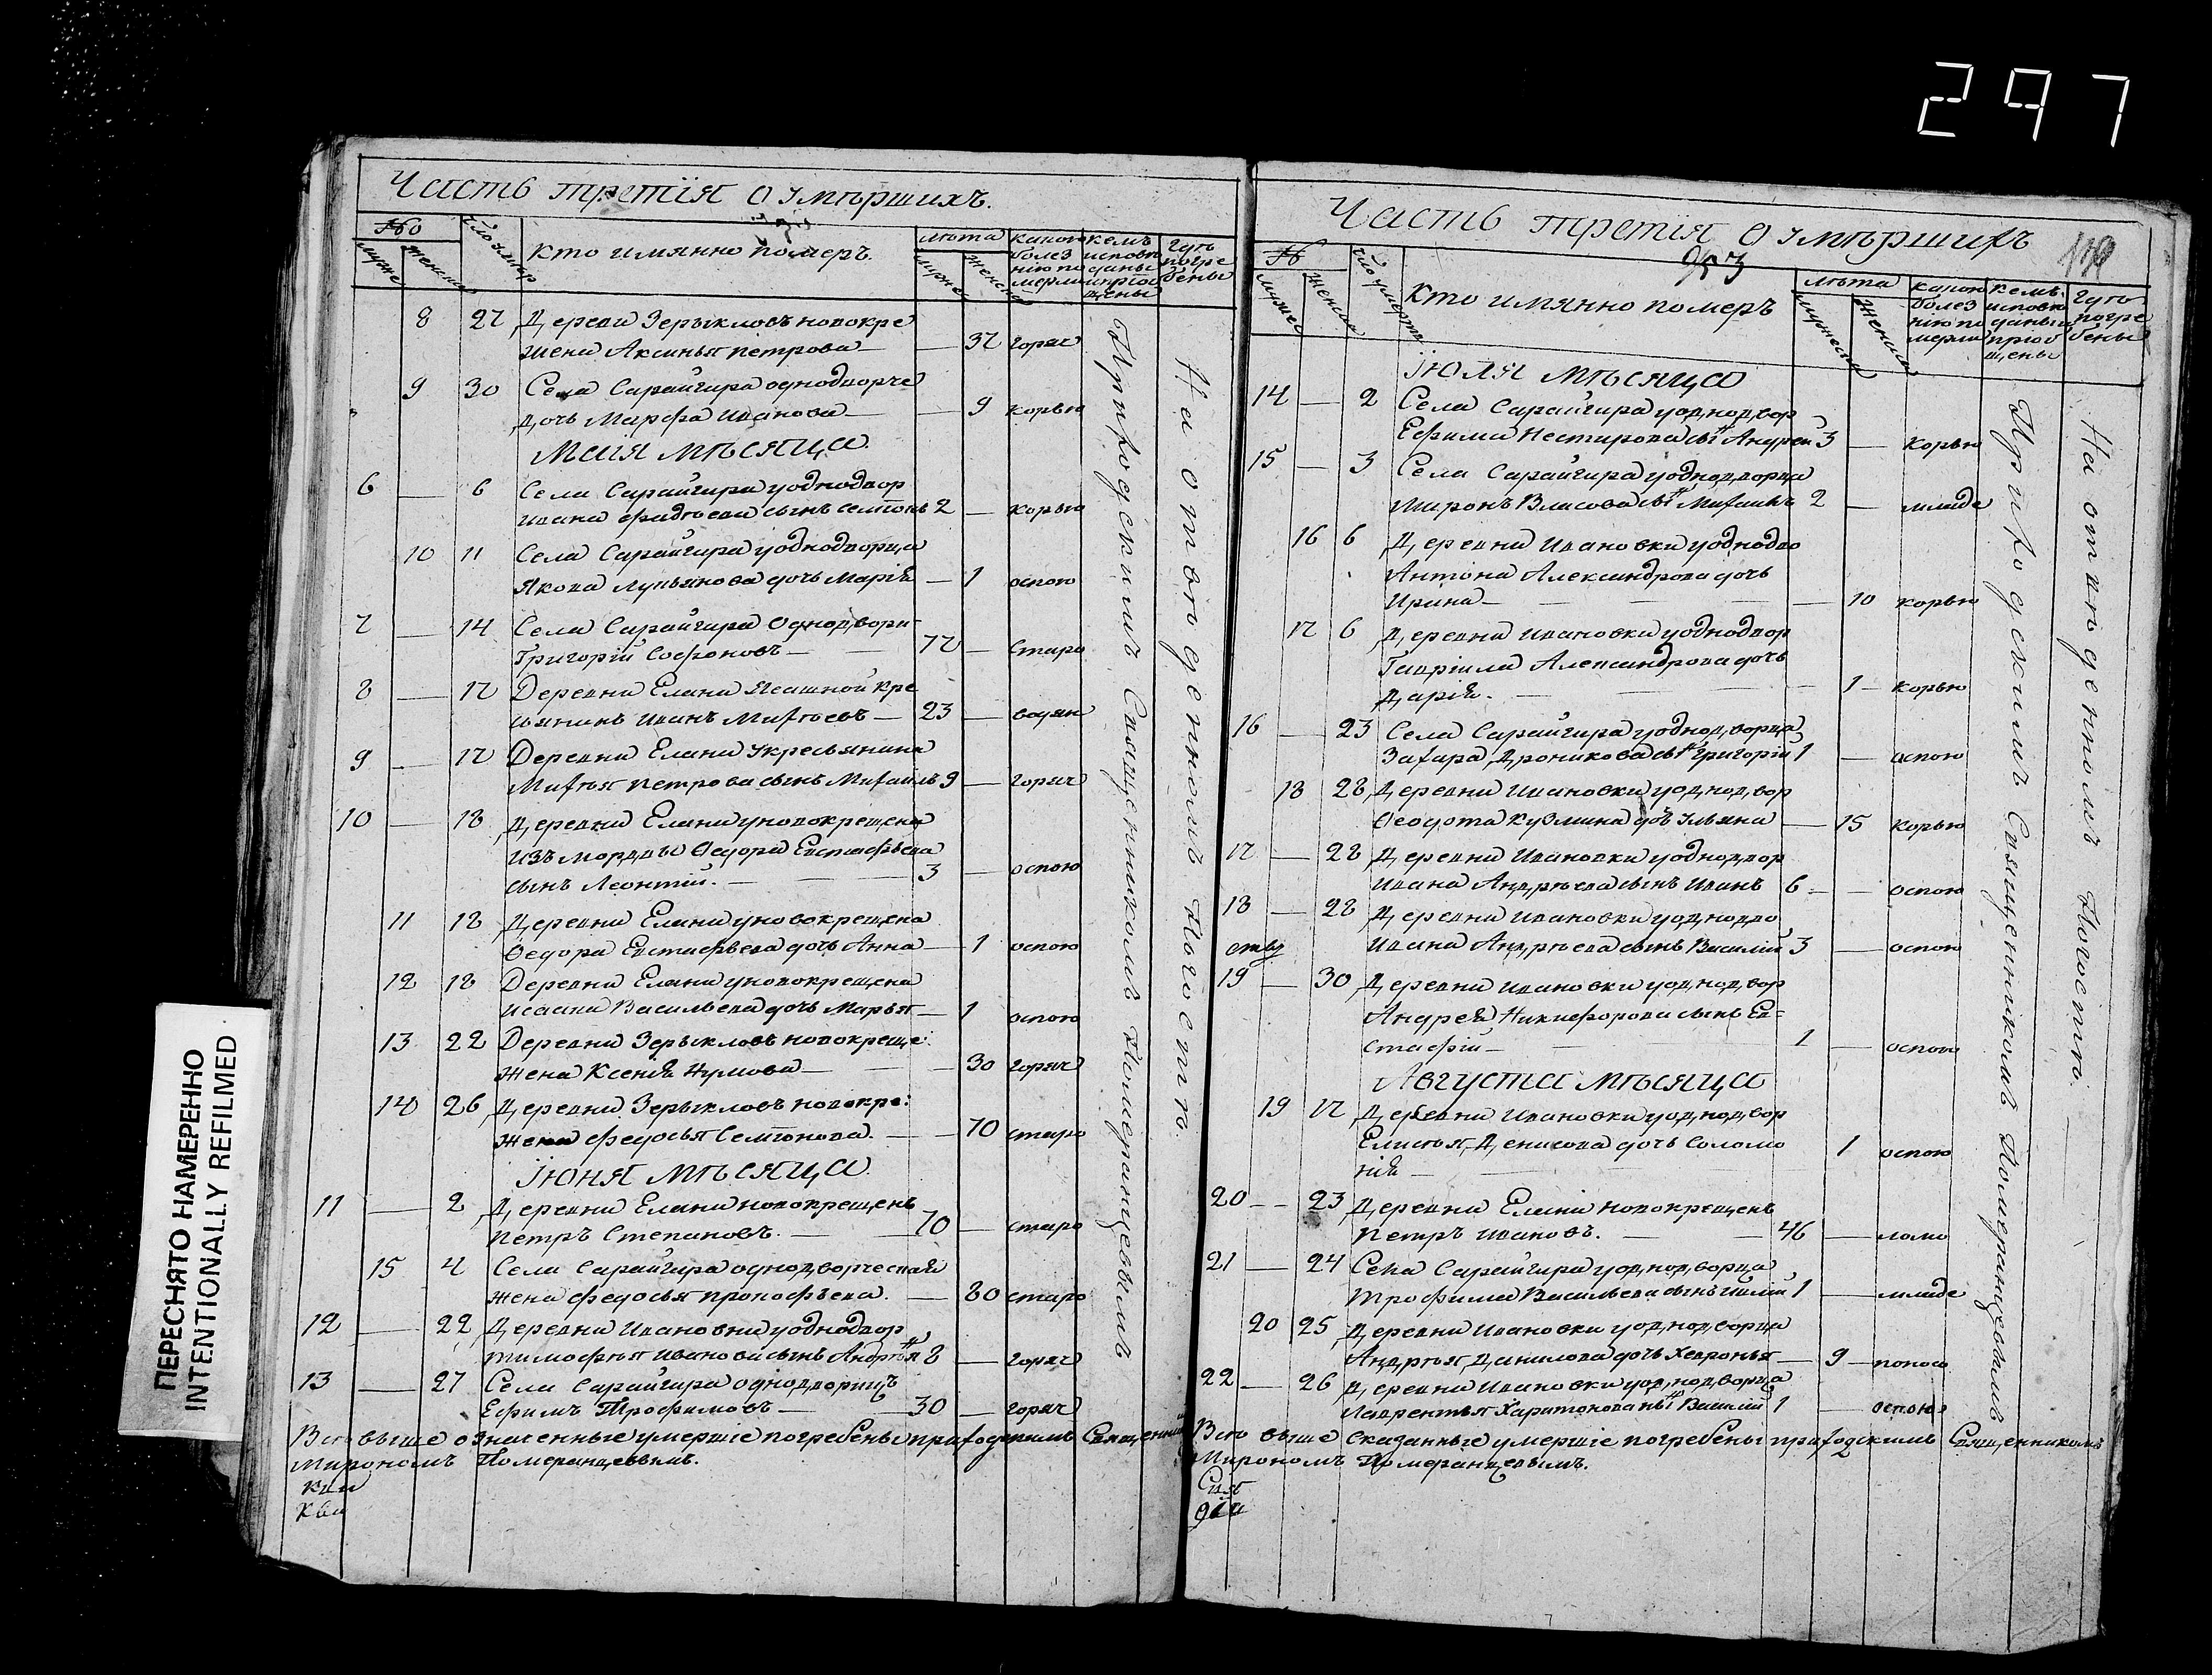 297
Часть третія О умѣршихъ.
№
мужес
женска
Кто имянно померъ.
лѣта
мужес
женска
какою болезнию померли
кемъ исповѣданы и приобщены
гдѣ погребены
8 27 Деревни Зерыкловъ новокре
щена Аксинья Петрова — — 37 горяч
9 30 Села Сарайгира однодворче
дочь Марфа Иванова — — 9 корью
Маія мѣсяца
6 — 6 Села Сарайгира у однодвор
Ивана Фадѣева сынъ Семіонъ 2 — корью
10 11 Села Сарайгира у однодворца
Якова Лукьянова дочь Марія — 1 оспою
7 — 14 Села Сарайгира Однодвори-
Григорій Софоновъ — 77 — старо
8 — 17 Деревни Елани Ясашной кре
сьянинъ Иванъ Михѣевъ — 23 — водян
9 — 17 Деревни Елани у кресьянина
Михѣя Петрова сынъ Михаилъ 9 — горяч
10 — 18 Деревни Елани у новокрещена
изъ мордвы Ѳедора Евстафьева
сынъ Леонтій. — 3 — оспою
11 18 Деревни Елани у новокрещена
Ѳедора Евстафьева дочь Анна — 1 оспою
12 18 Деревни Елани у новокрещена
Исаака Васильева дочь Марья — 1 оспою
13 22 Деревни Зерыкловъ новокреще:
жена Ксенія Наумова — — 30 горяч
14 26 Деревни Зерыкловъ новокре:
жена Федосья Семіонова. — — 70 старо
Іюня мѣсяца
11 — 2 Деревни Елани новокрещенъ
Петръ Степановъ. — 70 — старо
15 4 Села Сарайгира однодворческая
жена Федосья Прокофьева. — 80 старо
12 — 22 Деревни Ивановки у однодвор
Тимофѣя Иванова сынъ Андрѣй 8 — горяч
13 — 27 Села Сарайгира однодворицъ
Ефимъ Трофимовъ — 30 — горяч
Приходскимъ Священникомъ Померанцевымъ
На отведенномъ Погостѣ.
Всѣ выше означенные умершіе погребены приходскимъ Священник
Мирономъ Померанцевымъ.
Часть третія О умѣршихъ
953
№
мужес
женска
Кто имянно померъ
лѣта
мужеска
женска
какою болезнию померли
кемъ исповѣданы и приобщены
гдѣ погребены
Іюля мѣсяца
14 — 2 Села Сарайгира у однодвор
Ефима Нестирова сынъ Андрей 3 — корью
15 — 3 Села Сарайгира у однодворца
Миронъ Власова сынъ Михаилъ 2 — младе
16 6 Деревни Ивановки у однодво
Антона Александрова дочь
Ирина — — 10 корью
17 6 Деревни Ивановки у однодвор
Гавріила Александрова дочь
Дарія. — — 1 — корью
16 — 23 Села Сарайгира у однодворца
Захара Дроникова сынъ Григорій 1 — оспою
18 28 Деревни Ивановки у однодвор
Ѳеодота Кузмина дочь Ульяна — 15 корью
17 — 28 Деревни Ивановки у однодвор
Ивана Андрѣева сынъ Иванъ 6 — оспою
18 — 28 Деревни Ивановки у однодво
Ивана Андрѣева сынъ Василій 3 — оспою
19 — 30 Деревни Ивановки у однодвор
Андрея Никифорова сынъ Ев-
стафій — 1 — оспою
Августа мѣсяца
19 17 Деревни Ивановки у однодвор
Елисѣя Денисова дочь Соломо
нія — 1 оспою
20 — 23 Деревни Елани новокрещенъ
Петръ Ивановъ. — 46 — ломо
21 — 24 Села Сарайгира у однодворца
Трофима Васильева сынъ 1 — младе
20 25 Деревни Ивановки у однодворца
Андрѣя Данилова дочь Хевронья — 9 — поносо
22 — 26 Деревни Ивановки у однодворца
Лаврентья Харитонова сынъ Василій 1 — оспою
Приходскимъ Священникомъ Померанцевымъ
На отведенномъ Погостѣ.
Всѣ выше сказанные умершіе погребены приходскимъ Священникомъ
Мирономъ Померанцевымъ.
ПЕРЕСНЯТО НАМЕРЕННО
INTENTIONALLY REFILMED